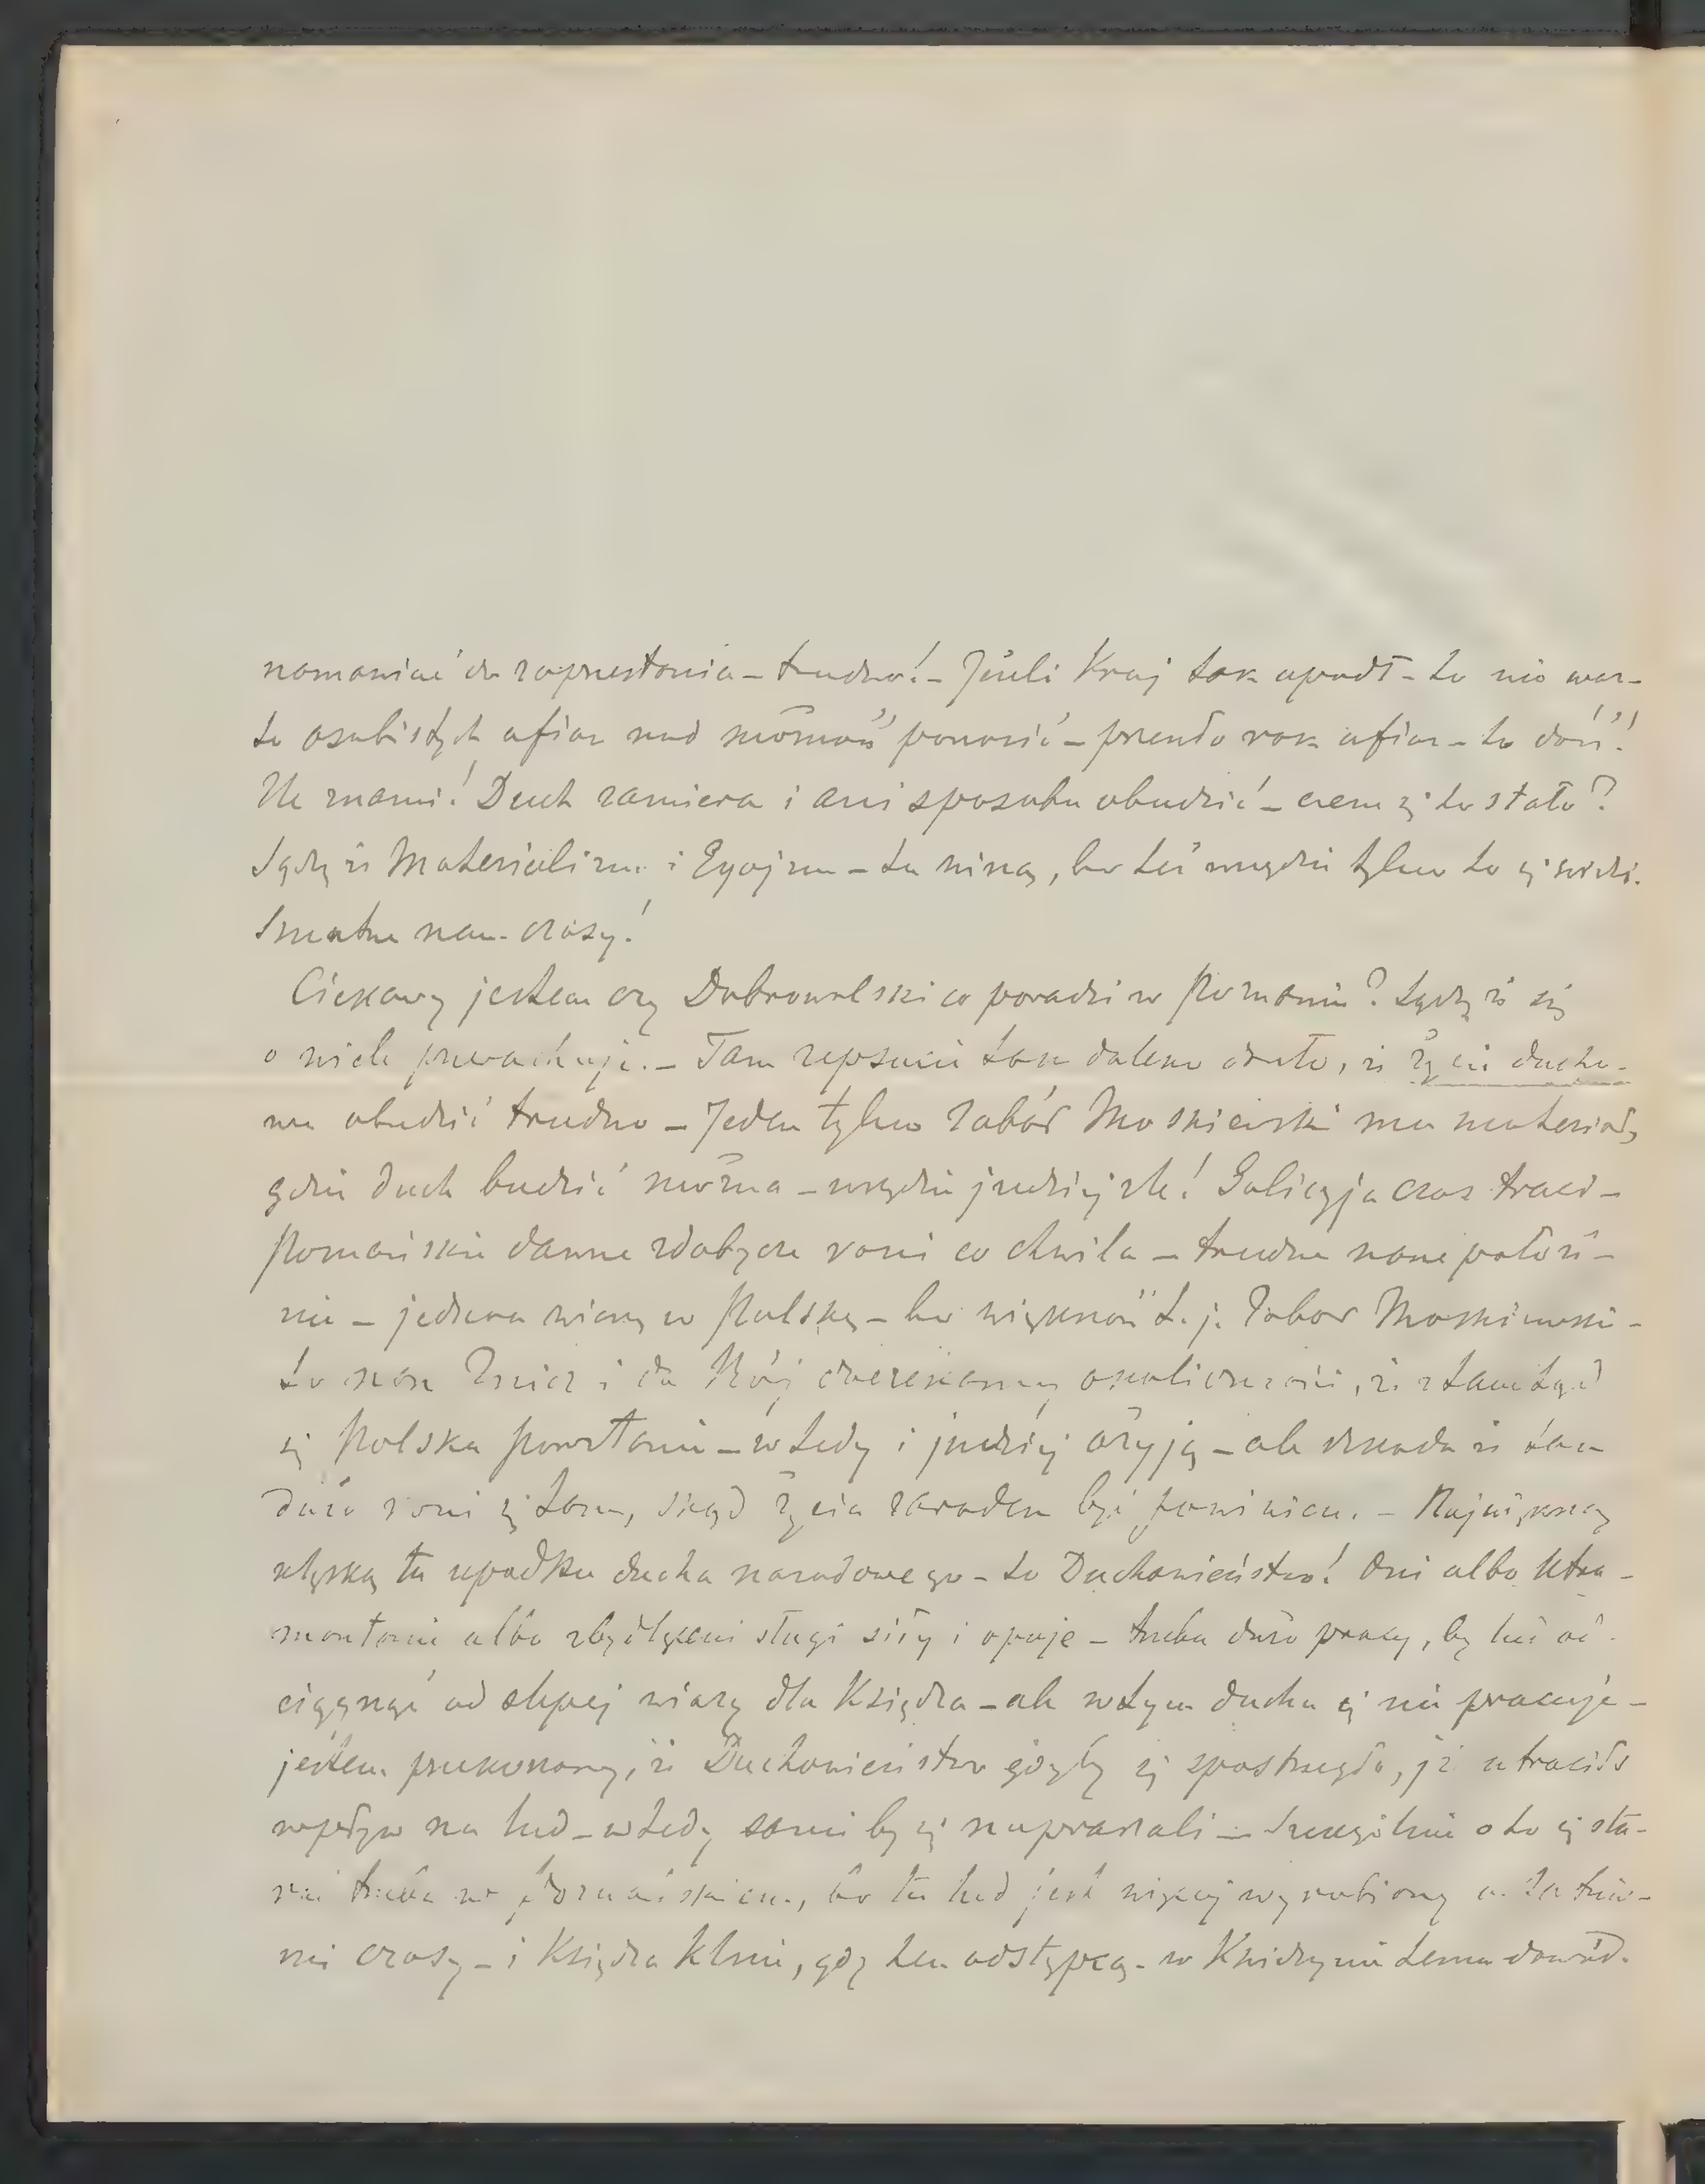 namawiać do zaprzestania – trudno! – Jeżeli Kraj tak upadł – to nie war-
to osobistych ofiar nad możność ponosić – przeszło rok ofiar – to dość!
Źle z nami! Duch zamiera i ani sposobu obudzić – czem się to stało?
Sądzę że Materializm i Egojzm – tu winą, bo też wszędzie tylko to się widzi.
Smutne nam czasy!
Ciekawy jestem czy Dobrowolski co poradzi w Poznaniu? Sądzę że się
o wiele przerachuje. – Tam zepsucie tak daleko doszło, że życie ducho-
we obudzić trudno – Jeden tylko Zabór Moskiewski ma materiał,
gdzie duch budzić można – wszędzie indziej źle! Galicyja czas traci –
Poznańskie dawne zdobycze roni co chwila – trudne nasze położe-
nie – jedyna wiara w Polskę – bo większość t. j. Zabór Moskiewski –
to nasz Znicz i da Bóg doczekamy okoliczności, że z tamtąd
się Polska powstanie – wtedy i indziej ożyją – ale szkoda że tak
dużo roni się tam, skąd życia zarodem być powinien. – Największą
tu upadku ducha narodowego – to Duchowieństwo! Oni albo Ultra-
montanie albo sługi siły i opoje – trzeba dużo pracy, by lud od-
ciągnąć od ślepej wiary dla Księdza – ale w tym duchu się nie pracuje –
jestem przekonany, że Duchowieństwo gdyby się spostrzegło, iż utraciło
wpływ na lud – wtedy sami by się naprawiali – Szczególnie o to się sta-
rać trzeba w Poznańskiem, bo tu lud jest więcej wyrobiony
czasy – i Księdza klnie, gdy ten odstępcą – w Kwidzynie temu dowód.